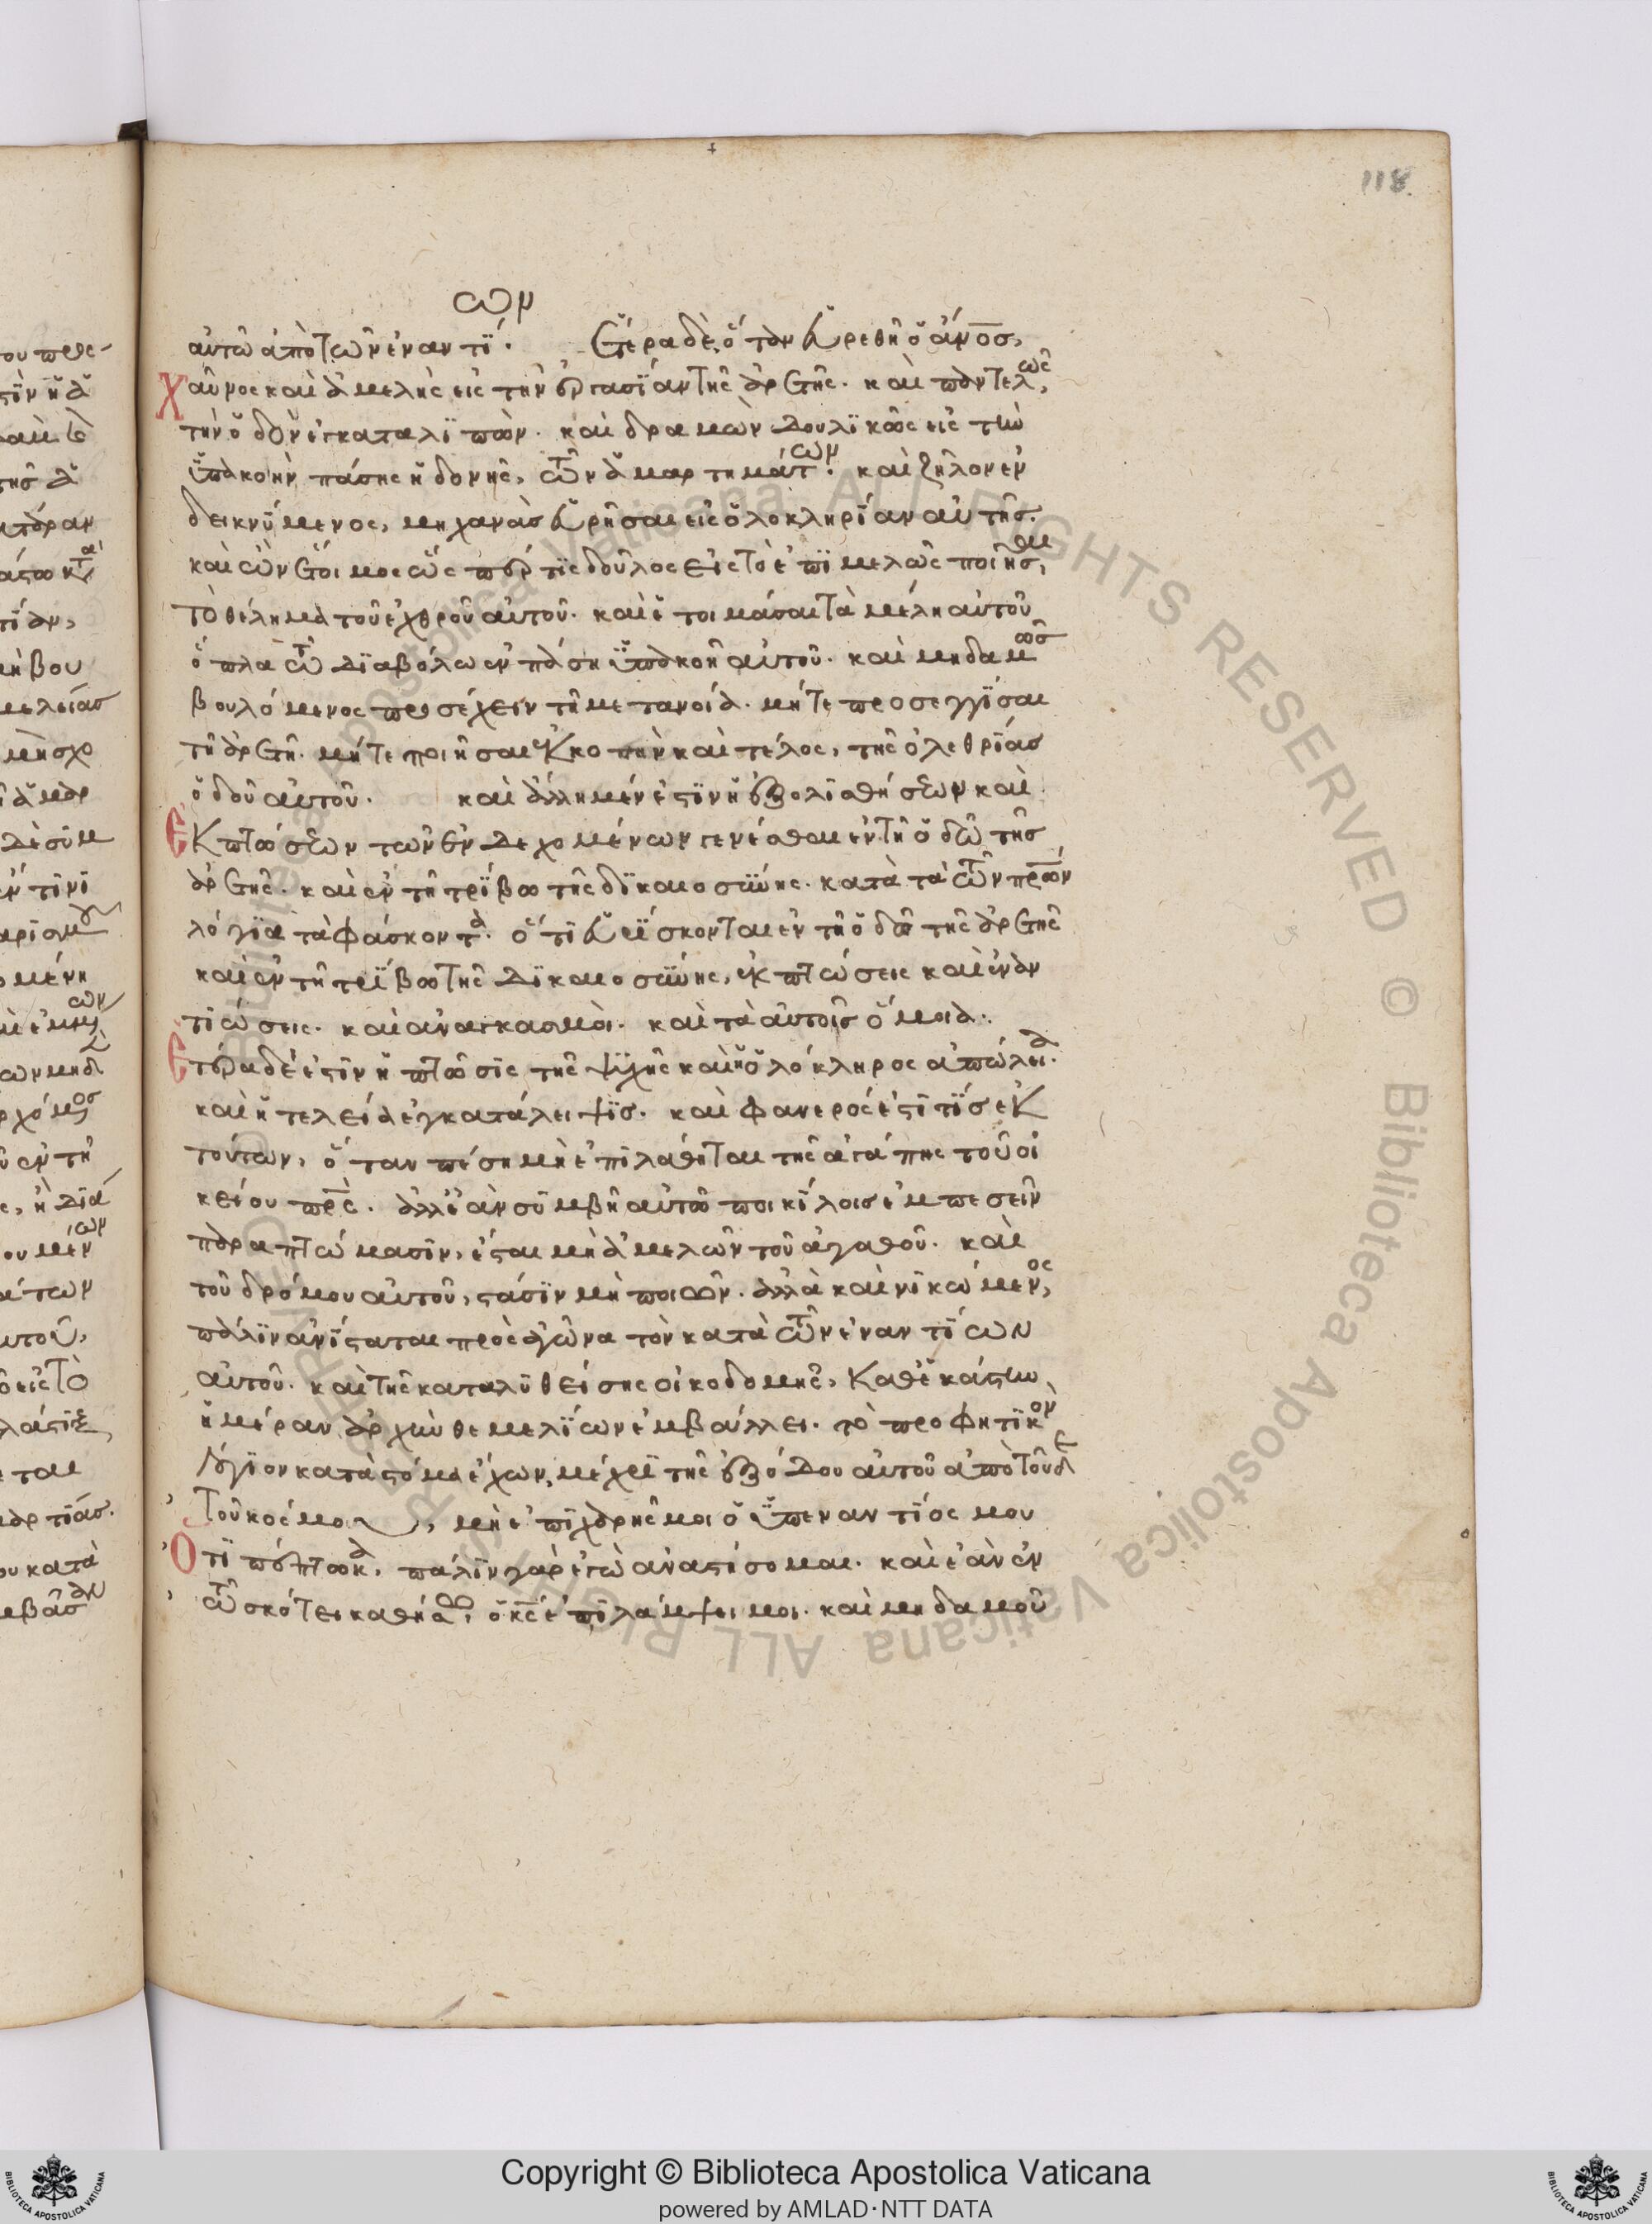 118
αὐτῶ ἀπὸ τῶν ἐναντίων. Ἑτέρα δὲ, ὅταν εὑρεθῆ ὁ ἄνος,
χαῦνος καὶ ἀμελὴς εἰς τὴν ἐργασΐαν τῆς ἀρετῆς. καὶ παντελῶς,
τὴν ὁδὸν ἐγκαταλϊπὼν. καὶ δραμὼν δουλϊκῶς εἰς τὴν
ὑπακοὴν πάσης ἡδονῆς, τῶν ἁμαρτημάτων. καὶ ζῆλον ἐν
δεικνύμενος, μηχανὰσ εὑρῆσαι εἰς ὁλοκληρΐαν αὐτῆσ.
καὶ ὢν ἕτοιμος ὥς περ τΐς δοῦλος εἰς τὸ ἐπϊμελῶς ποιῆσαι,
τὸ θέλημα τοῦ ἐχθροῦ αὐτοῦ. καὶ ἑτοιμάσαι τὰ μέλη αὐτοῦ
ὅπλα τῶ δϊαβόλω ἐν πάση ὑπακοῆ αὐτοῦ. καὶ μηδαμῶσ
βουλόμενος προσέχειν τῆ μετανοία. μήτε προσεγγΐσαι
τῆ ἀρετῆ. μήτε ποιῆσαι ἐκκοπὴν καὶ τέλος, τῆς ὀλεθρΐασ
ὁδοῦ αὐτοῦ. καὶ ἄλλη μέν ἐστϊν ἡ ἐξ ὀλϊσθήσεων καὶ
ἐκπτώσεων τῶν ἐνδεχομένων γενέσθαι ἐν τῆ ὁδῶ τῆσ
ἀρετῆς. καὶ ἐν τῆ τρΐβω τῆς δϊκαιοσύνης. κατὰ τὰ τῶν πρων
λόγϊα τὰ φάσκοντα. ὅτϊ εὑρΐσκονται ἐν τῆ ὁδῶ τῆς ἀρετῆς
καὶ ἐν τῆ τρΐβω τῆς δϊκαιοσύνης, ἐκπτώσεις καὶ ἐναν
τϊώσεις. καὶ ἀναγκασμοὶ. καὶ τὰ αὐτοῖσ ὅμοια.
Ἑτέρα δέ ἐστϊν ἡ πτῶσϊς τῆς ψυχῆς καὶ ἡ ὁλόκληρος ἀπώλεια.
καὶ ἡ τελεία ἐγκατάλειψϊσ. καὶ φανερός ἐστΐ τΐσ ἐκ
τούτων, ὅταν πέση μὴ ἐπϊλαθῆται τῆς ἀγάπης τοῦ οἰ
κείου πρς. ἀλλ' ἐὰν συμβῆ αὐτῶ ποικΐλοισ ἐμπεσεῖν
παραπτώμασϊν, ἔσται μὴ ἀμελῶν τοῦ ἀγαθοῦ. καὶ
τοῦ δρόμου αὐτοῦ, στάσϊν μὴ ποιῶν. ἀλλὰ καὶ νϊκώμενος,
πάλϊν ἀνΐσταται πρὸς ἀγῶνα τὸν κατὰ τῶν ἐναντΐων
αὐτοῦ. καὶ τῆς καταλυθείσης οἰκοδομῆς, καθ' ἑκάστην
ἡμέραν ἀρχὴν θεμελΐων ἐμβάλλει. τὸ προφητϊκὸν
λόγϊον κατὰ στόμα ἔχων, μέχρϊ τῆς ἐξόδου αὐτοῦ ἀπὸ τοῦδε
τοῦ κόσμου, μὴ ἐπϊχαρῆς μοι ὁ ὑπεναντΐος μου
ὅτϊ πέπτωκα, πάλϊν γὰρ ἐγὼ ἀναστήσομαι. καὶ ἐὰν ἐν
τῶ σκότει καθήσω, ὁ κς ἐπϊλάμψει μοι. καὶ μηδαμοῦ
Copyright © Biblioteca Apostolica Vaticana
powered by AMLAD·NTT DATA